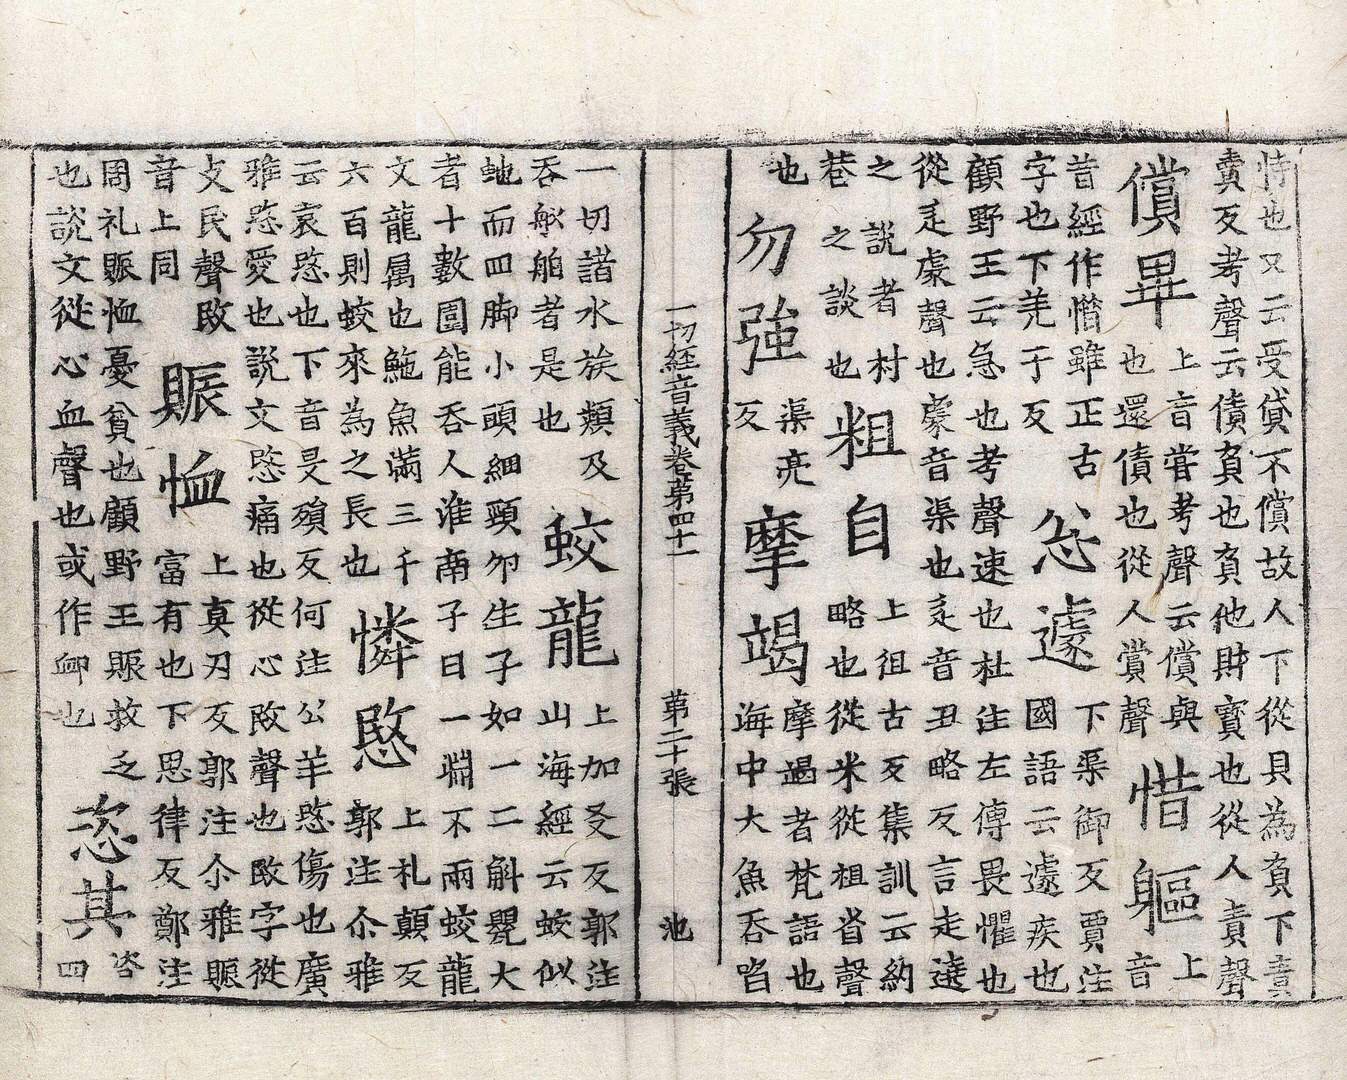 恃也又云受貸不償故人下從貝為負下責
賣反考聲云債負也負他財寳也從人責聲
償畢
上音甞考聲云償與
也還債也從人賞聲
惜軀
上
音
昔經作憯雖正古
字也下羌于反
忩遽
下渠御反賈注
國語云遽疾也
顧野王云急也考聲速也杜注左傳畏懼也
從辵豦聲也豦音渠也辵音丑略反言走遠
之說者村
巷之談也
粗自
上徂古反集訓云約
略也從米從祖省聲
也
勿強
渠亮
反
摩竭
摩竭者梵語也
海中大魚吞啗
一切經音義卷苐四十一 苐二十張 池
一切諸水族類及
吞舩舶者是也
蛟龍
上加爻反郭注
山海經云蛟似
虵而四脚小頭細頸夘生子如一二斛甖大
者十數圍能吞人淮南子曰一淵不兩蛟龍
文龍属也鮑魚滿三千
六百則蛟來為之長也
憐愍
上礼顛反
郭注尒雅
云哀愍也下音旻殞反何注公羊愍傷也廣
雅愍愛也說文愍痛也從心敃聲也敃字從
攴民聲敃
音上同
賑恤
上真刃反郭注尒雅賑
富有也下思律反鄭注
周礼賑恤憂貧也顧野王賑救乏
也說文從心血聲也或作卹也
恣其
咨
四